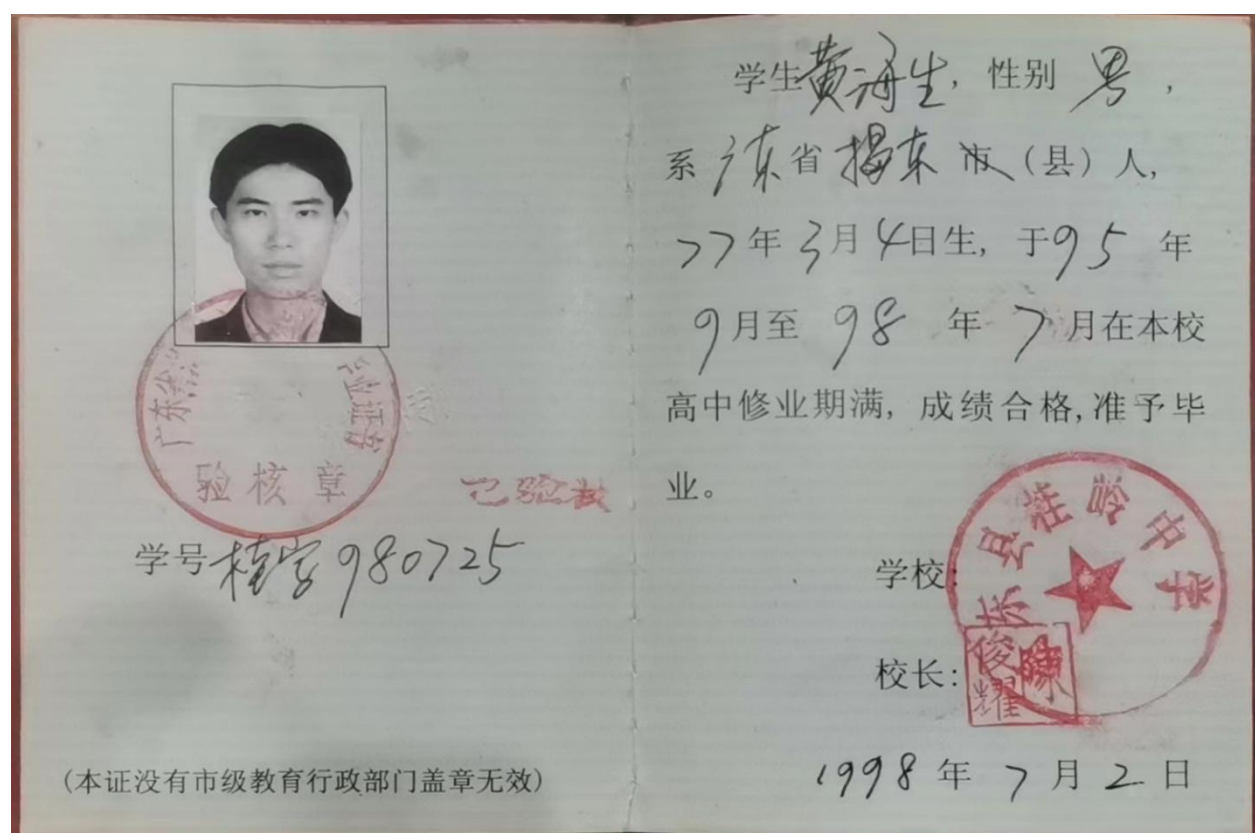 广东省
毕业证书
验核章
已验核
学号桂字980725
(本证没有市级教育行政部门盖章无效)
学生黄海生,性别 男,
系广东省揭东市(县)人,
77年3月4日生,于95年
9月至 98 年 7月在本校
高中修业期满,成绩合格,准予毕
业。
学校:
东县桂岭中学
校长:
陈俊耀
1998年7月2日